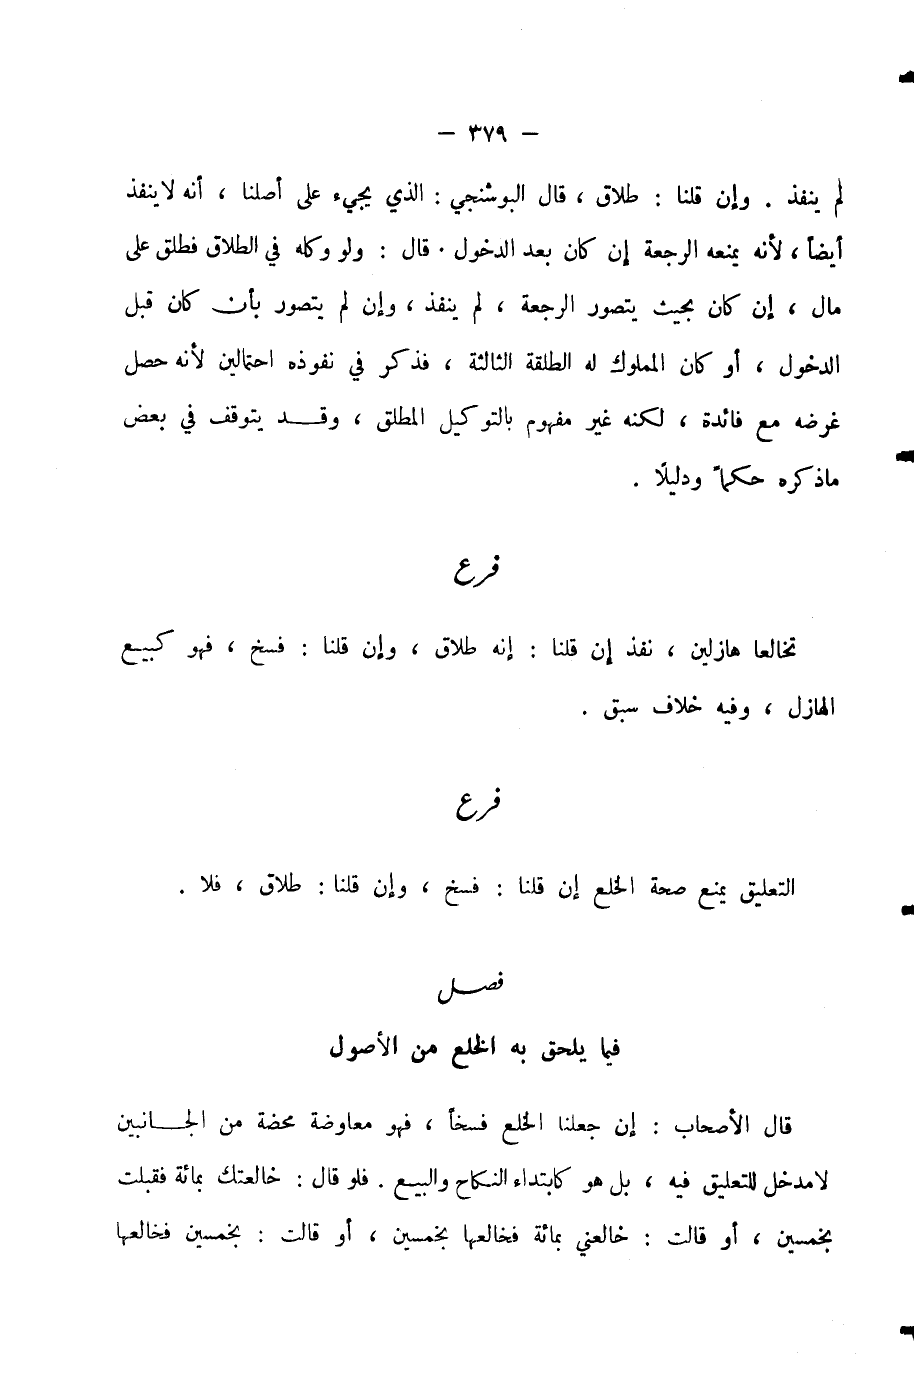 — ٣٧٩ —
لم ينفذ . وإن قلنا : طلاق ، قال البوشنجي : الذي يجيء على أصلنا ، أنه لاينفذ
أيضاً ، لأنه يمنعه الرجعة إن كان بعد الدخول . قال : ولو وكله في الطلاق فطلق على
مال ، إن كان بحيث يتصور الرجعة ، لم ينفذ ، وإن لم يتصور بأن كان قبل
الدخول ، أو كان المملوك له الطلقة الثالثة ، فذكر في نفوذه احتمالين لأنه حصل
غرضه مع فائدة ، لكنه غير مفهوم بالتوكيل المطلق ، وقد يتوقف في بعض
ماذكره حكماً ودليلًا .
فرع
تخالعا هازلين ، نفذ إن قلنا : إنه طلاق ، وإن قلنا : فسخ ، فهو كبيع
الهازل ، وفيه خلاف سبق .
فرع
التعليق يمنع صحة الخلع إن قلنا : فسخ ، وإن قلنا : طلاق ، فلا .
فصل
فيما يلحق به الخلع من الأصول
قال الأصحاب : إن جعلنا الخلع فسخاً ، فهو معاوضة محضة من الجانبين
لامدخل للتعليق فيه ، بل هو كابتداء النكاح والبيع . فلو قال : خالعتك بمائة فقبلت
بخمسين ، أو قالت : خالعني بمائة فخالعها بخمسين ، أو قالت : بخمسين فخالعها